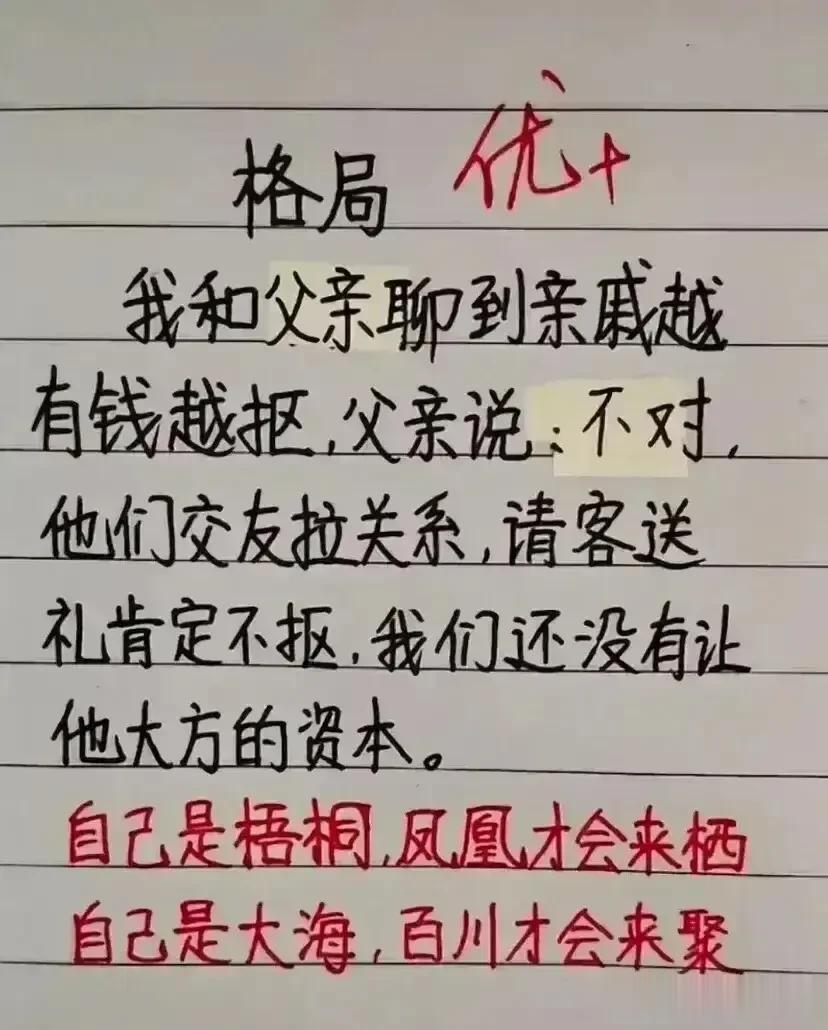 格局 优+
我和父亲聊到亲戚越
有钱越抠,父亲说:不对,
他们交友拉关系,请客送
礼肯定不抠,我们还没有让
他大方的资本。
自己是梧桐,凤凰才会来栖
自己是大海,百川才会来聚